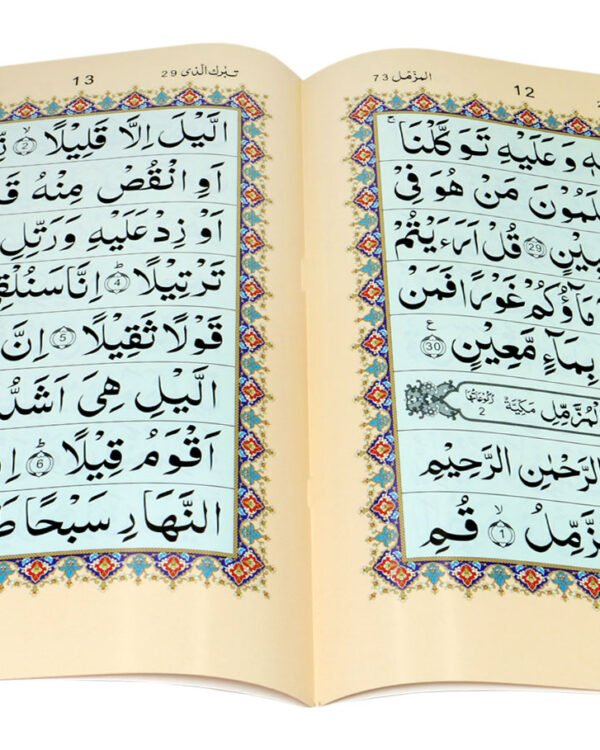 المزمل 73 12
وَعَلَيْهِ تَوَكَّلْنَا ۚ
لَمُوْنَ مَنْ هُوَ فِىْ
بِيْنٍ 29 قُلْ اَرَءَيْتُمْ
مَآؤُكُمْ غَوْرًا فَمَنْ
بِمَآءٍ مَّعِيْنٍ 30 ع
الْمُزَّمِّلِ مَكِّيَّةٌ رُكُوْعَاتُهَا 2
الرَّحْمٰنِ الرَّحِيْمِ
زَّمِّلُ 1 قُمِ
تبرك الذی 29 13
الَّيْلَ اِلَّا قَلِيْلًا 2
اَوِ انْقُصْ مِنْهُ قَ
اَوْ زِدْ عَلَيْهِ وَرَتِّلِ
تَرْتِيْلًا 4 اِنَّا سَنُلْقِ
قَوْلًا ثَقِيْلًا 5 اِنَّ
الَّيْلِ هِىَ اَشَدُّ
اَقْوَمُ قِيْلًا 6 اِ
النَّهَارِ سَبْحًا طَ